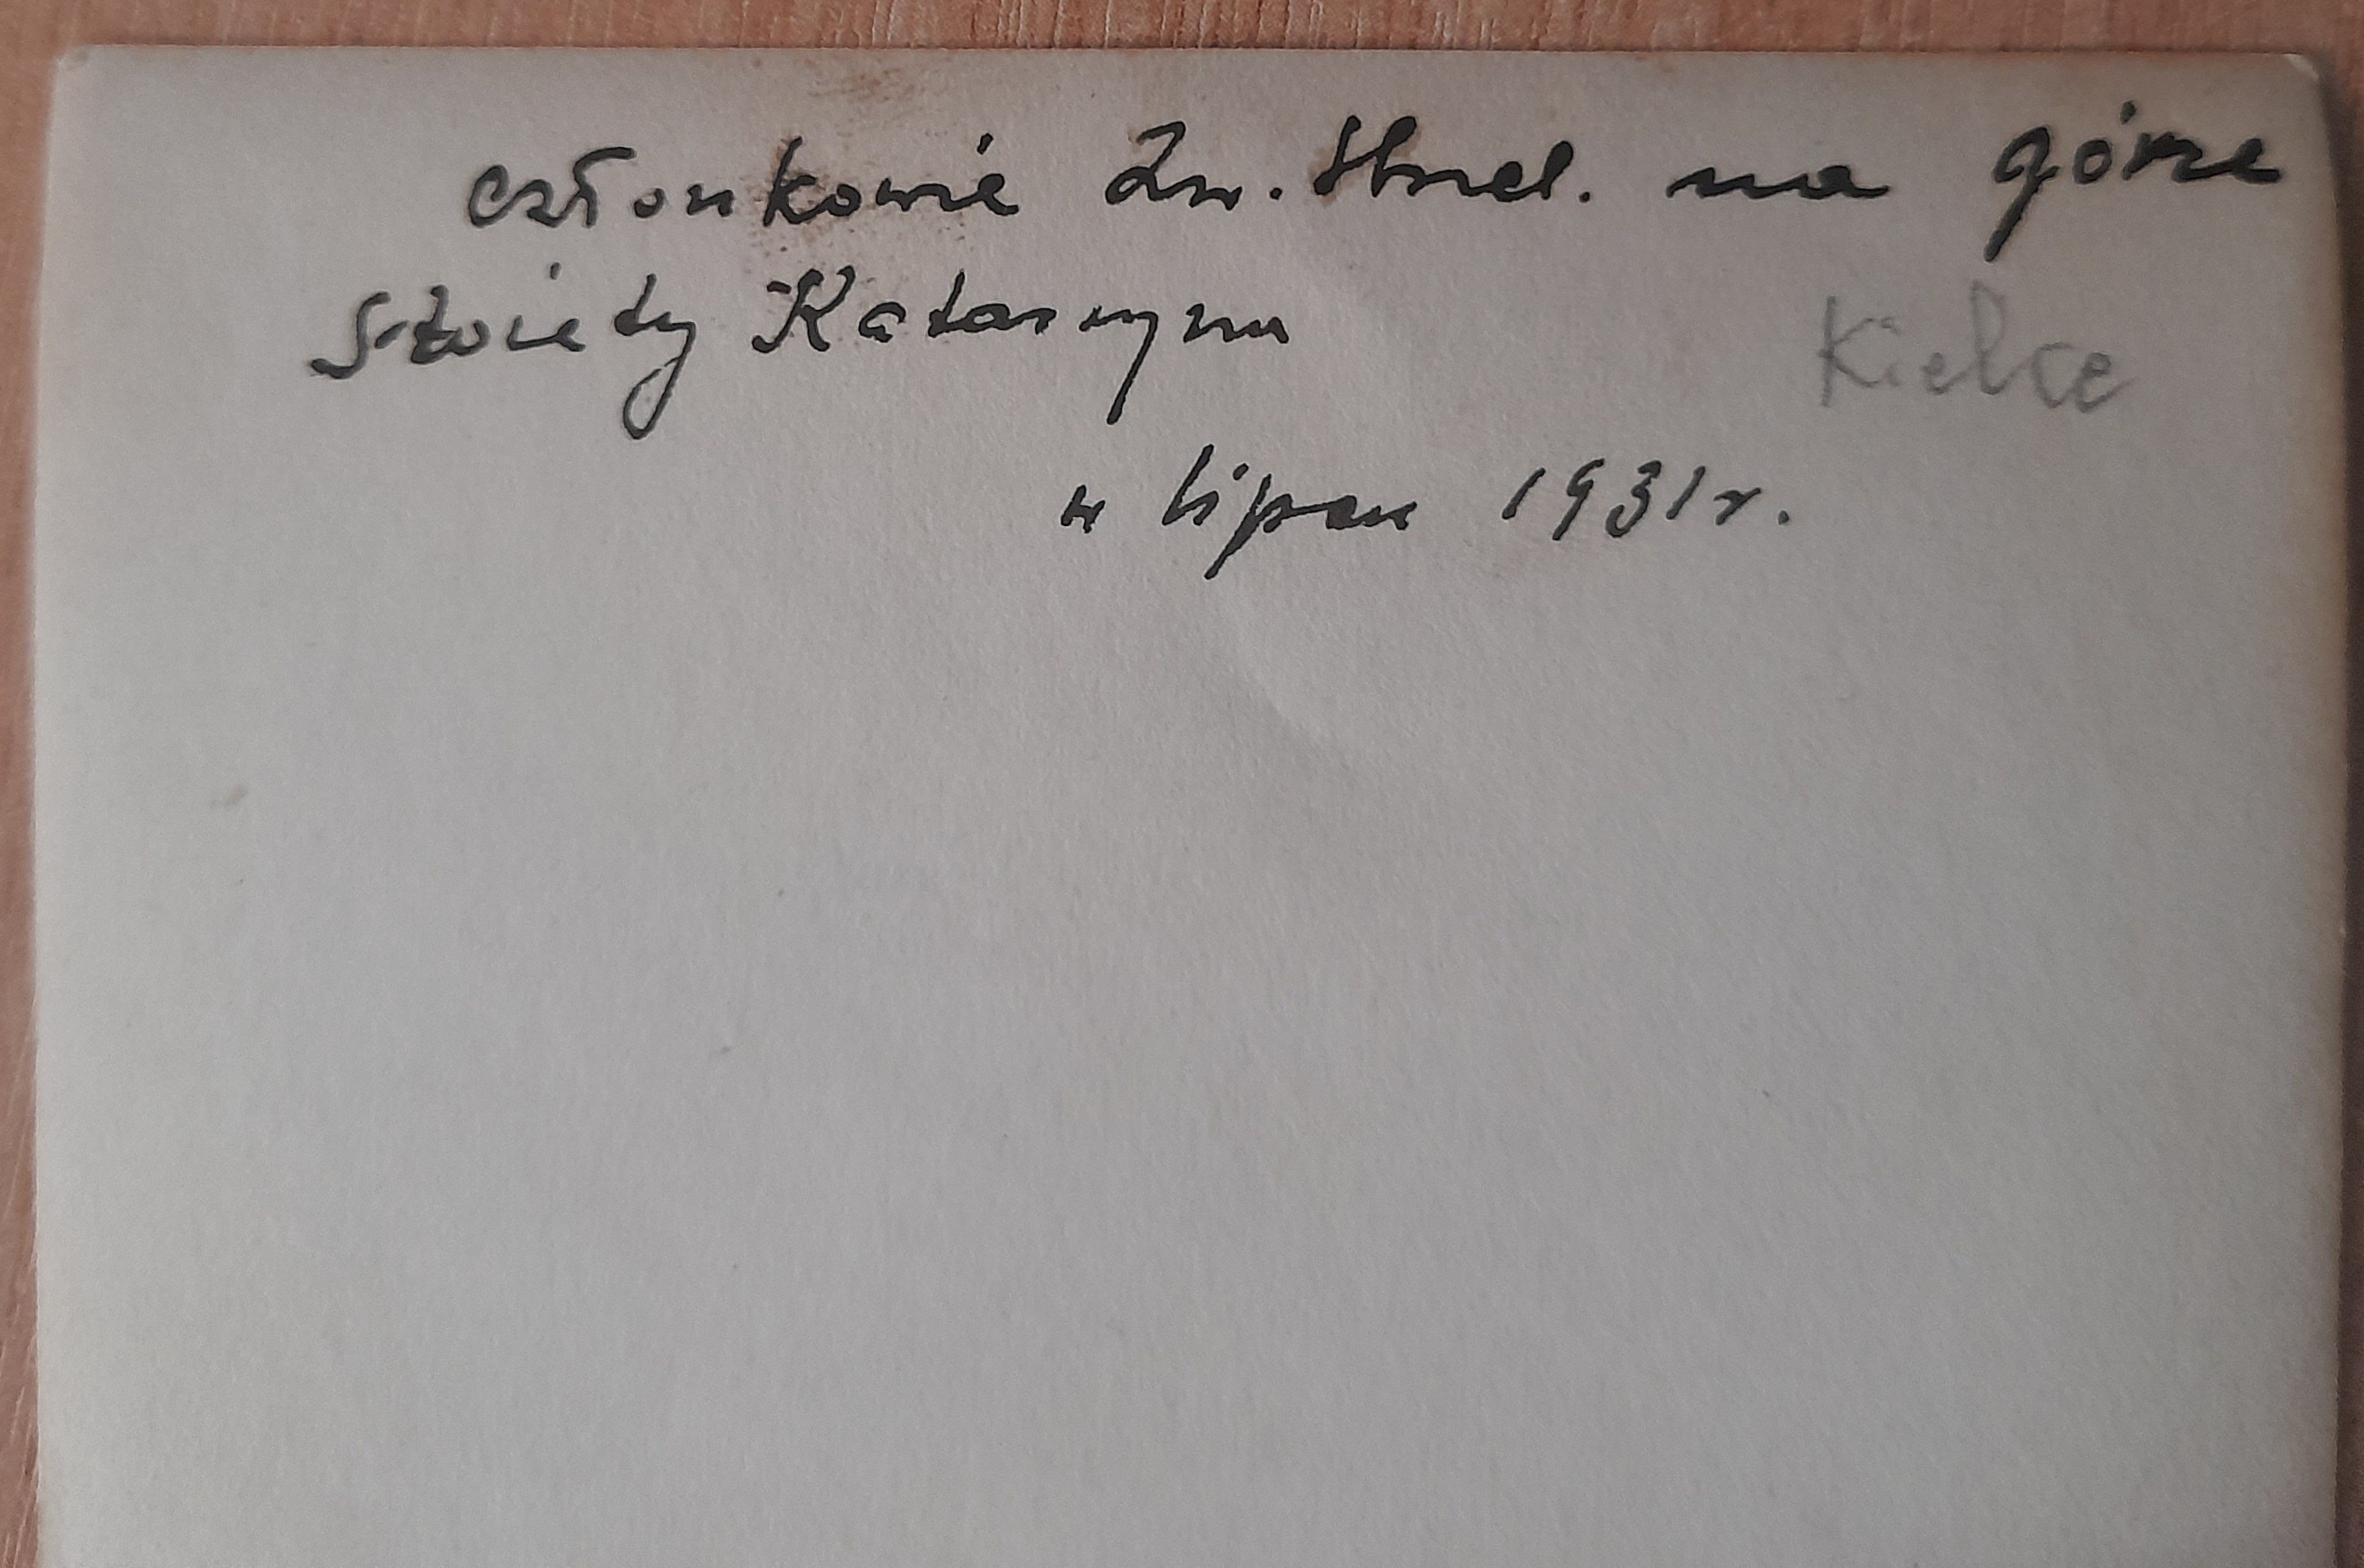 członkowie Zw. Strzel. na górze
Święty Katarzyna
Kielce
w lipcu 1931 r.